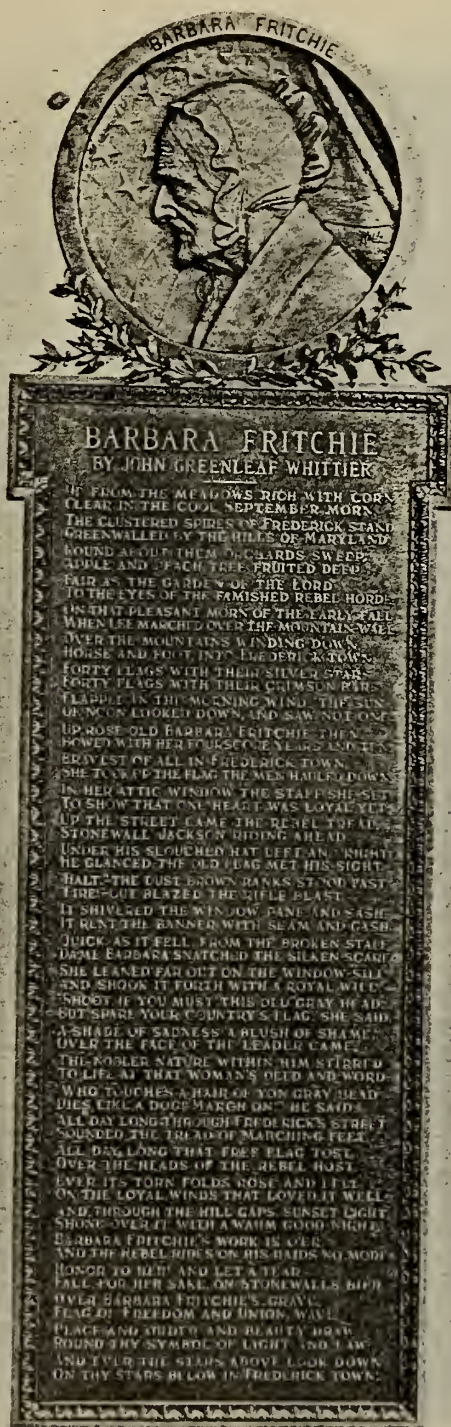 BARBARA FRITCHIE
BARBARA FRITCHIE
BY JOHN GREENLEAF WHITTIER
UP FROM THE MEADOWS RICH WITH CORN
CLEAR IN THE COOL SEPTEMBER MORN
THE CLUSTERED SPIRES OF FREDERICK STAND
GREENWALLED BY THE HILLS OF MARYLAND
ROUND ABOUT THEM ORCHARDS SWEEP
APPLE AND PEACH TREE FRUITED DEEP
FAIR AS THE GARDEN OF THE LORD
TO THE EYES OF THE FAMISHED REBEL HORDE
ON THAT PLEASANT MORN OF THE EARLY FALL
WHEN LEE MARCHED OVER THE MOUNTAIN WALL
OVER THE MOUNTAINS WINDING DOWN
HORSE AND FOOT INTO FREDERICK TOWN
FORTY FLAGS WITH THEIR SILVER STARS
FORTY FLAGS WITH THEIR CRIMSON BARS
FLAPPED IN THE MORNING WIND THE SUN
OF NOON LOOKED DOWN AND SAW NOT ONE
UP ROSE OLD BARBARA FRITCHIE THEN
BOWED WITH HER FOURSCORE YEARS AND TEN
BRAVEST OF ALL IN FREDERICK TOWN
SHE TOOK UP THE FLAG THE MEN HAULED DOWN
IN HER ATTIC WINDOW THE STAFF SHE SET
TO SHOW THAT ONE HEART WAS LOYAL YET
UP THE STREET CAME THE REBEL TREAD
STONEWALL JACKSON RIDING AHEAD
UNDER HIS SLOUCHED HAT LEFT AND RIGHT
HE GLANCED THE OLD FLAG MET HIS SIGHT
HALT THE DUST BROWN RANKS STOOD FAST
FIRE OUT BLAZED THE RIFLE BLAST
IT SHIVERED THE WINDOW PANE AND SASH
IT RENT THE BANNER WITH SEAM AND GASH
QUICK AS IT FELL FROM THE BROKEN STAFF
DAME BARBARA SNATCHED THE SILKEN SCARF
SHE LEANED FAR OUT ON THE WINDOW SILL
AND SHOOK IT FORTH WITH A ROYAL WILL
SHOOT IF YOU MUST THIS OLD GRAY HEAD
BUT SPARE YOUR COUNTRY'S FLAG SHE SAID
A SHADE OF SADNESS A BLUSH OF SHAME
OVER THE FACE OF THE LEADER CAME
THE NOBLER NATURE WITHIN HIM STIRRED
TO LIFE AT THAT WOMAN'S DEED AND WORD
WHO TOUCHES A HAIR OF YON GRAY HEAD
DIES LIKE A DOG MARCH ON HE SAID
ALL DAY LONG THROUGH FREDERICK'S STREET
SOUNDED THE TREAD OF MARCHING FEET
ALL DAY LONG THAT FREE FLAG TOST
OVER THE HEADS OF THE REBEL HOST
EVER ITS TORN FOLDS ROSE AND FELL
ON THE LOYAL WINDS THAT LOVED IT WELL
AND THROUGH THE HILL GAPS SUNSET LIGHT
SHONE OVER IT WITH A WARM GOOD NIGHT
BARBARA FRITCHIE'S WORK IS O'ER
AND THE REBEL RIDES ON HIS RAIDS NO MORE
HONOR TO HER AND LET A TEAR
FALL FOR HER SAKE ON STONEWALL'S BIER
OVER BARBARA FRITCHIE'S GRAVE
FLAG OF FREEDOM AND UNION WAVE
PEACE AND ORDER AND BEAUTY DRAW
ROUND THY SYMBOL OF LIGHT AND LAW
AND EVER THE STARS ABOVE LOOK DOWN
ON THY STARS BELOW IN FREDERICK TOWN